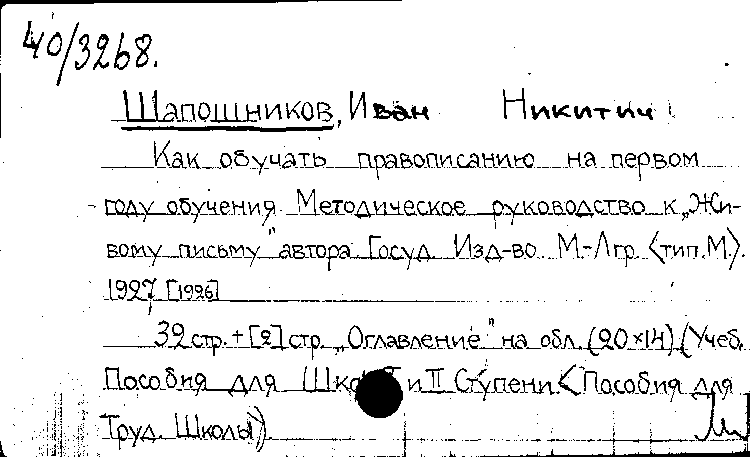 40/3268.
Шапошников, Иван Никитич
Как обучать правописанию на первом
году обучения. Методическое руководство к „Жи-
вому письму" автора. Госуд. Изд-во. М.-Лгр. <тип. М.>.
1927 [1926]
32 стр. + [2] стр. „Оглавление" на обл. (20×14). (Учеб.
Пособия для и II Ступени. <Пособия для
Труд. Школы>).